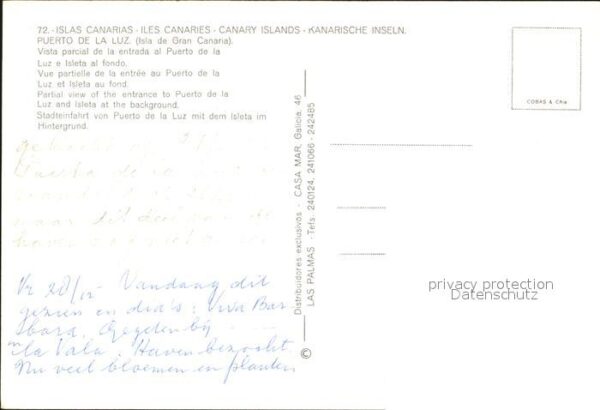 72.- ISLAS CANARIAS - ILES CANARIES - CANARY ISLANDS - KANARISCHE INSELN.
PUERTO DE LA LUZ. (Isla de Gran Canaria).
Vista parcial de la entrada al Puerto de la
Luz e Isleta al fondo.
Vue partielle de la entrée au Puerto de la
Luz et Isleta au fond.
Partial view of the entrance to Puerto de la
Luz and Isleta at the background.
Stadteinfahrt von Puerto de la Luz mit dem Isleta im
Hintergrund.
Puerto de la
maar dit deel van de
haven
Vr 20/12 Vandaag dit
gezien en dia's: Viva Bar
bara. Gegeten bij
la Vala. Haven bezocht.
Nu veel bloemen en planten
Distribuidores exclusivos - CASA MAR. Galicia, 46
LAS PALMAS - Tefs. 240124, 241066 - 242485
©
COBAS A Cñia
privacy protection
Datenschutz